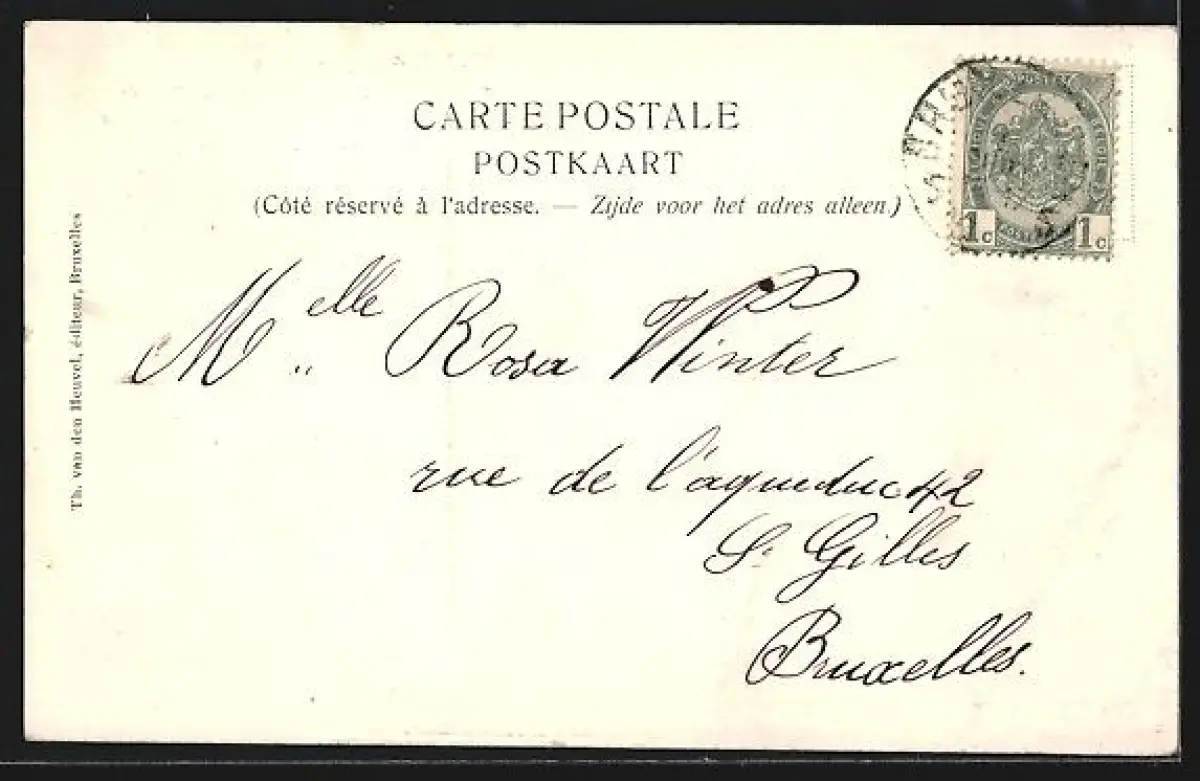 CARTE POSTALE
POSTKAART
(Côté réservé à l'adresse. — Zijde voor het adres alleen.)
1c 1c
Th. van den Heuvel, éditeur, Bruxelles
Melle Rosa Winter
rue de l'aqueduc 42
St Gilles
Bruxelles.